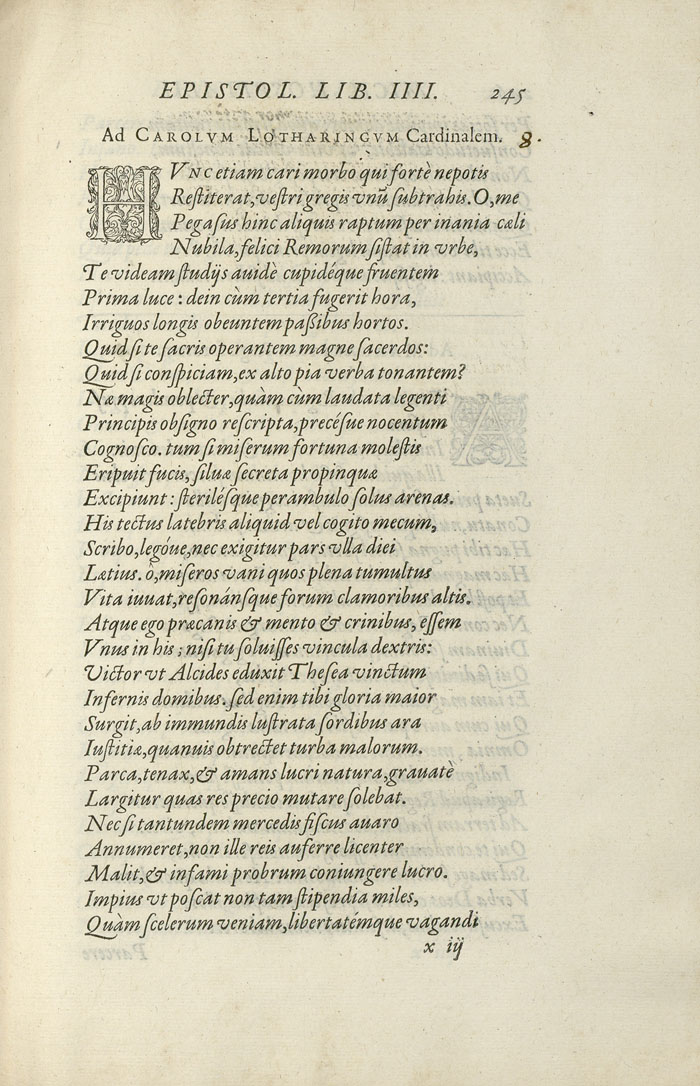 EPISTOL. LIB. IIII. 245
Ad CAROLVM LOTHARINGVM Cardinalem. 8.
HVNC etiam cari morbo qui fortè nepotis
Restiterat, vestri gregis vnũ subtrahis. O, me
Pegasus hinc aliquis raptum per inania cæli
Nubila, felici Remorum sistat in vrbe,
Te videam studijs auidè cupidéque fruentem
Prima luce: dein cùm tertia fugerit hora,
Irriguos longis obeuntem paßibus hortos.
Quid si te sacris operantem magne sacerdos:
Quid si conspiciam, ex alto pia verba tonantem?
Næ magis oblecter, quàm cùm laudata legenti
Principis obsigno rescripta, precésue nocentum
Cognosco. tum si miserum fortuna molestis
Eripuit fucis, siluæ secreta propinquæ
Excipiunt: sterilésque perambulo solus arenas.
His tectus latebris aliquid vel cogito mecum,
Scribo, legóue, nec exigitur pars vlla diei
Lætius. ò, miseros vani quos plena tumultus
Vita iuuat, resonánsque forum clamoribus altis.
Atque ego præcanis & mento & crinibus, essem
Vnus in his; nisi tu soluisses vincula dextris:
Victor vt Alcides eduxit Thesea vinctum
Infernis domibus. sed enim tibi gloria maior
Surgit, ab immundis lustrata sordibus ara
Iustitiæ, quanuis obtrectet turba malorum.
Parca, tenax, & amans lucri natura, grauatè
Largitur quas res precio mutare solebat.
Nec si tantundem mercedis fiscus auaro
Annumeret, non ille reis auferre licenter
Malit, & infami probrum coniungere lucro.
Impius vt poscat non tam stipendia miles,
Quàm scelerum veniam, libertatémque vagandi
x iij